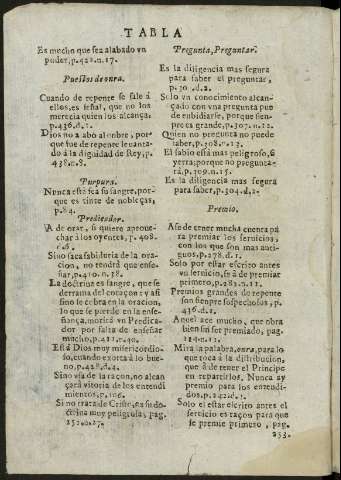 TABLA
Es mucho que sea alabado vn
poder, p.421.n.17.
Puestos de onra.
Cuando de repente se sale á
ellos, es señal, que no los
merecia quien los alcança.
p.436.d.1.
Dios no a abõ al onbre, por-
que fue de repente leuanta-
do á la dignidad de Rey, p.
438.n.8.
Purpura.
Nunca está fea su sangre, por-
que es tinte de noblezas,
p.84.
Predicador.
A de orar, si quiere aproue-
char á los oyentes, p.408.
Sino saca sabiduria de la ora
cion, no tendrá que ense-
ñar, p.410.n.18.
La doctrina es sangre, que se
derrama del coraçon: y asi
sino se cobra en la oracion,
lo que se pierde en la ense-
ñança, morirá vn Predica-
dor por falta de enseñar
mucho, p.411.n.40.
Está Dios muy misericordio-
so, cuando exorta á lo bue-
no, p.428.d.4.
Sino vsa de la razon, no alcan
çará vitoria de los entendi
mientos, p.106.
Si no trata de Cristo, es su do-
ctrina muy peligrosa, pag.
Pregunta, Preguntar.
Es la diligencia mas segura
para saber el preguntar,
Solo vn conocimiento alcan-
çado con vna pregunta pue
de enbidiarse, porque sien-
pre es grande, p.307.n.12.
Quien no pregunta no puede
saber, p.308.n.13.
El sabio está mas peligroso, si
yerra; porque no pregunta-
rá, p.309.n.15.
Es la diligencia mas segura
para saber, p.304.d.2.
Premio.
A se de tener mucha cuenta pa
ra premiar los seruicios,
con los que son mas anti-
guos, p.278.d.1.
Solo por estar escrito antes
vn seruicio, se á de premiar
primero, p.281.n.11.
Premios grandes de repente
son sienpre sospechosos, p.
436.d.1.
Aquel ace mucho, que obra
bien sin ser premiado, pag.
Mira la palabra, onra, para lo
que toca á la distribucion,
que á de tener el Principe
en repartirlos. Nunca ay
premio para los entendi-
dos, p.242.d.1.
Solo el estar escrito antes el
seruicio es raçon para que
se premie primero, pag.
253.